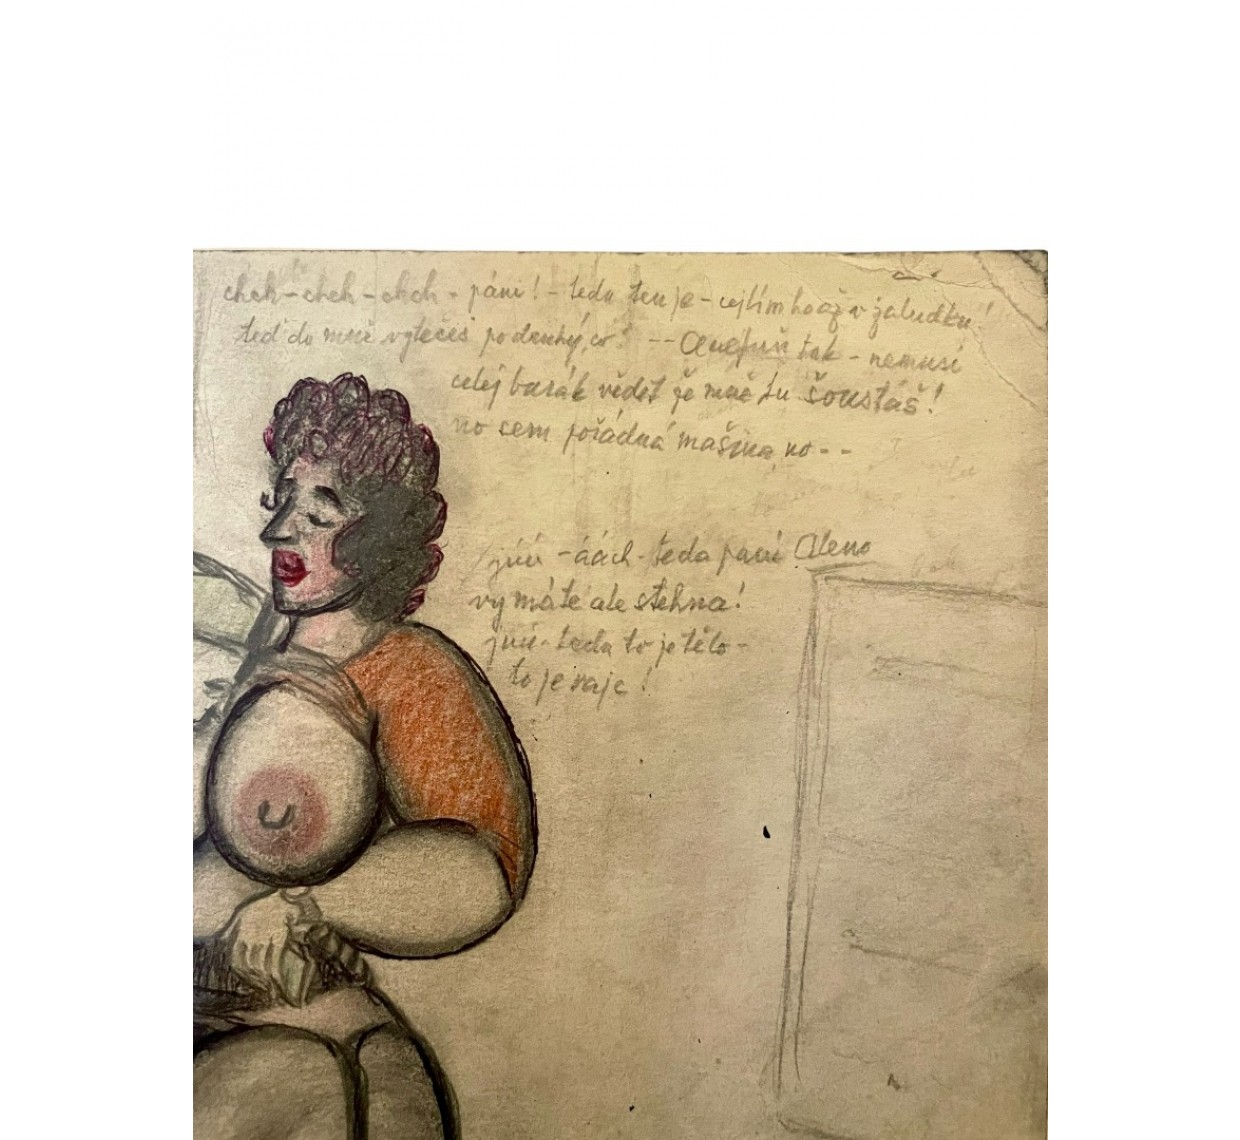 chch - chch - chch - páni! - teda ten je - cejtím ho až v žaludku!
teď do mně vytečeš podruhý, co? -- tak - nemusí
celej barák vědet že mně tu šoustáš!
no sem pořádná mašina, no --
jůů - áách - teda paní Aleno
vy máte ale stehna!
jůů - teda to je tělo -
to je